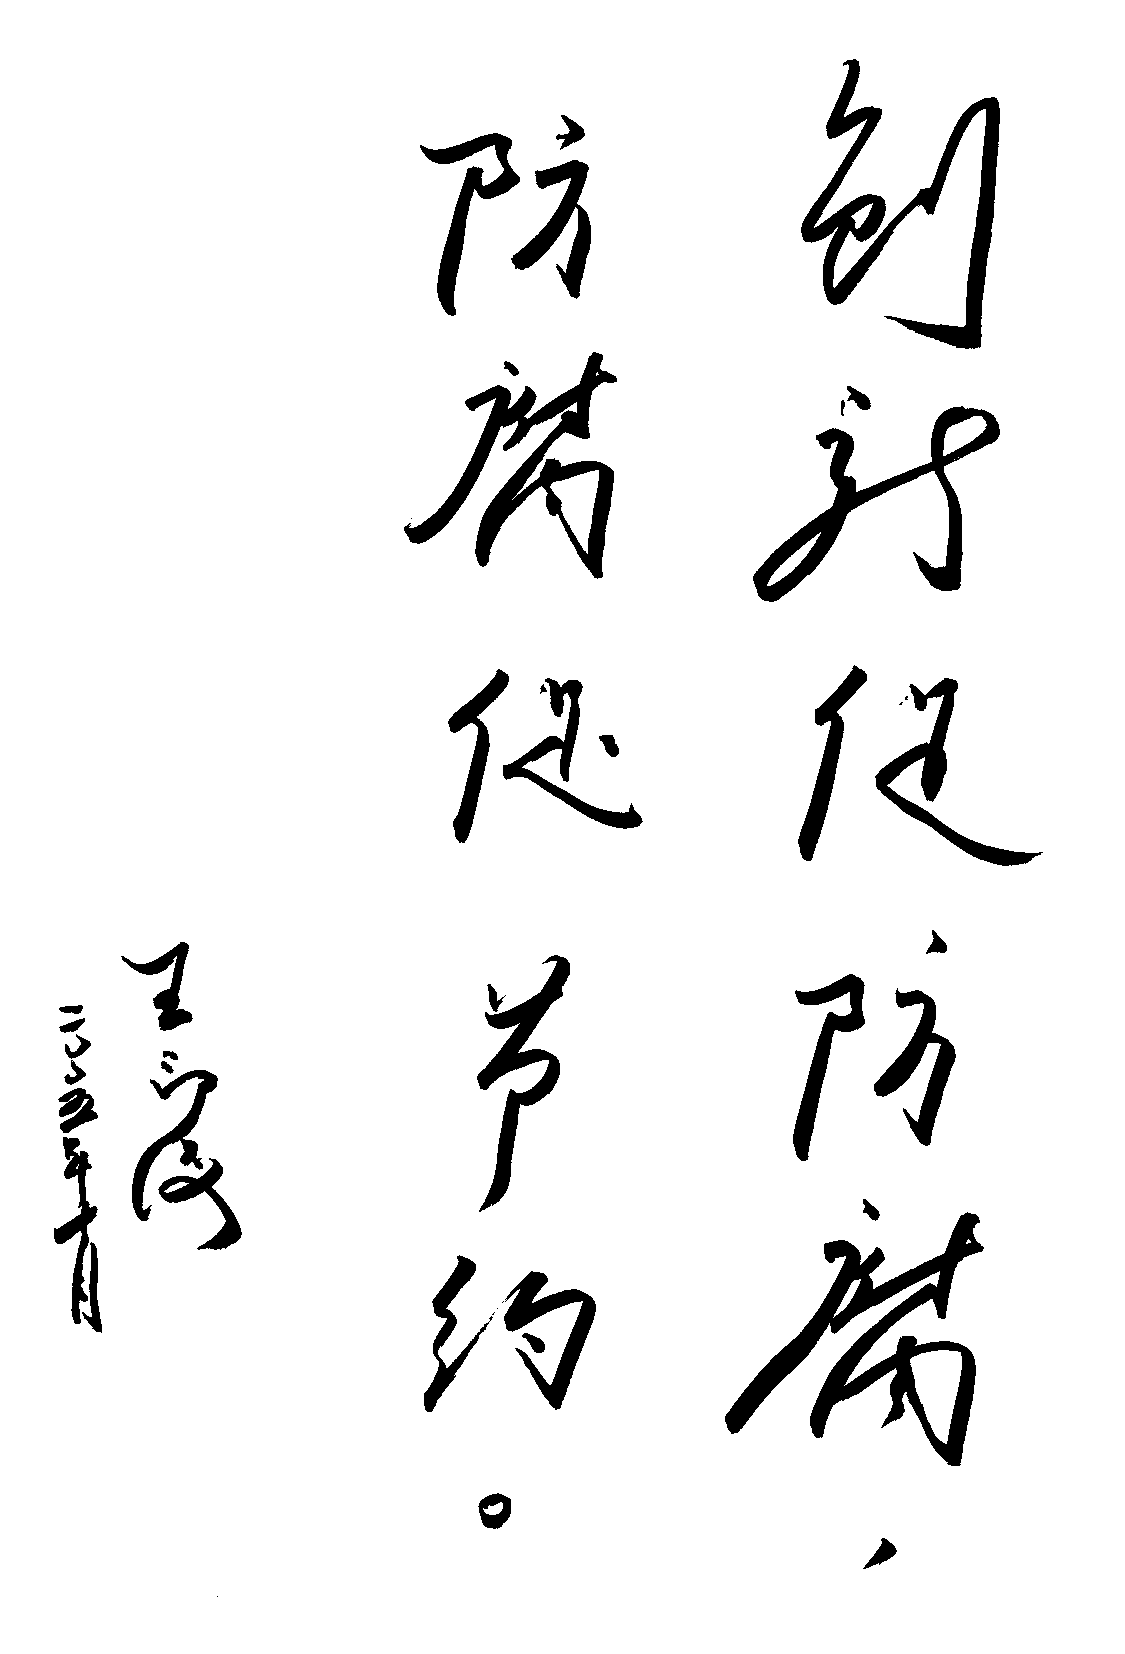 创新促防腐，
防腐促节约。
王
二〇〇五年十月